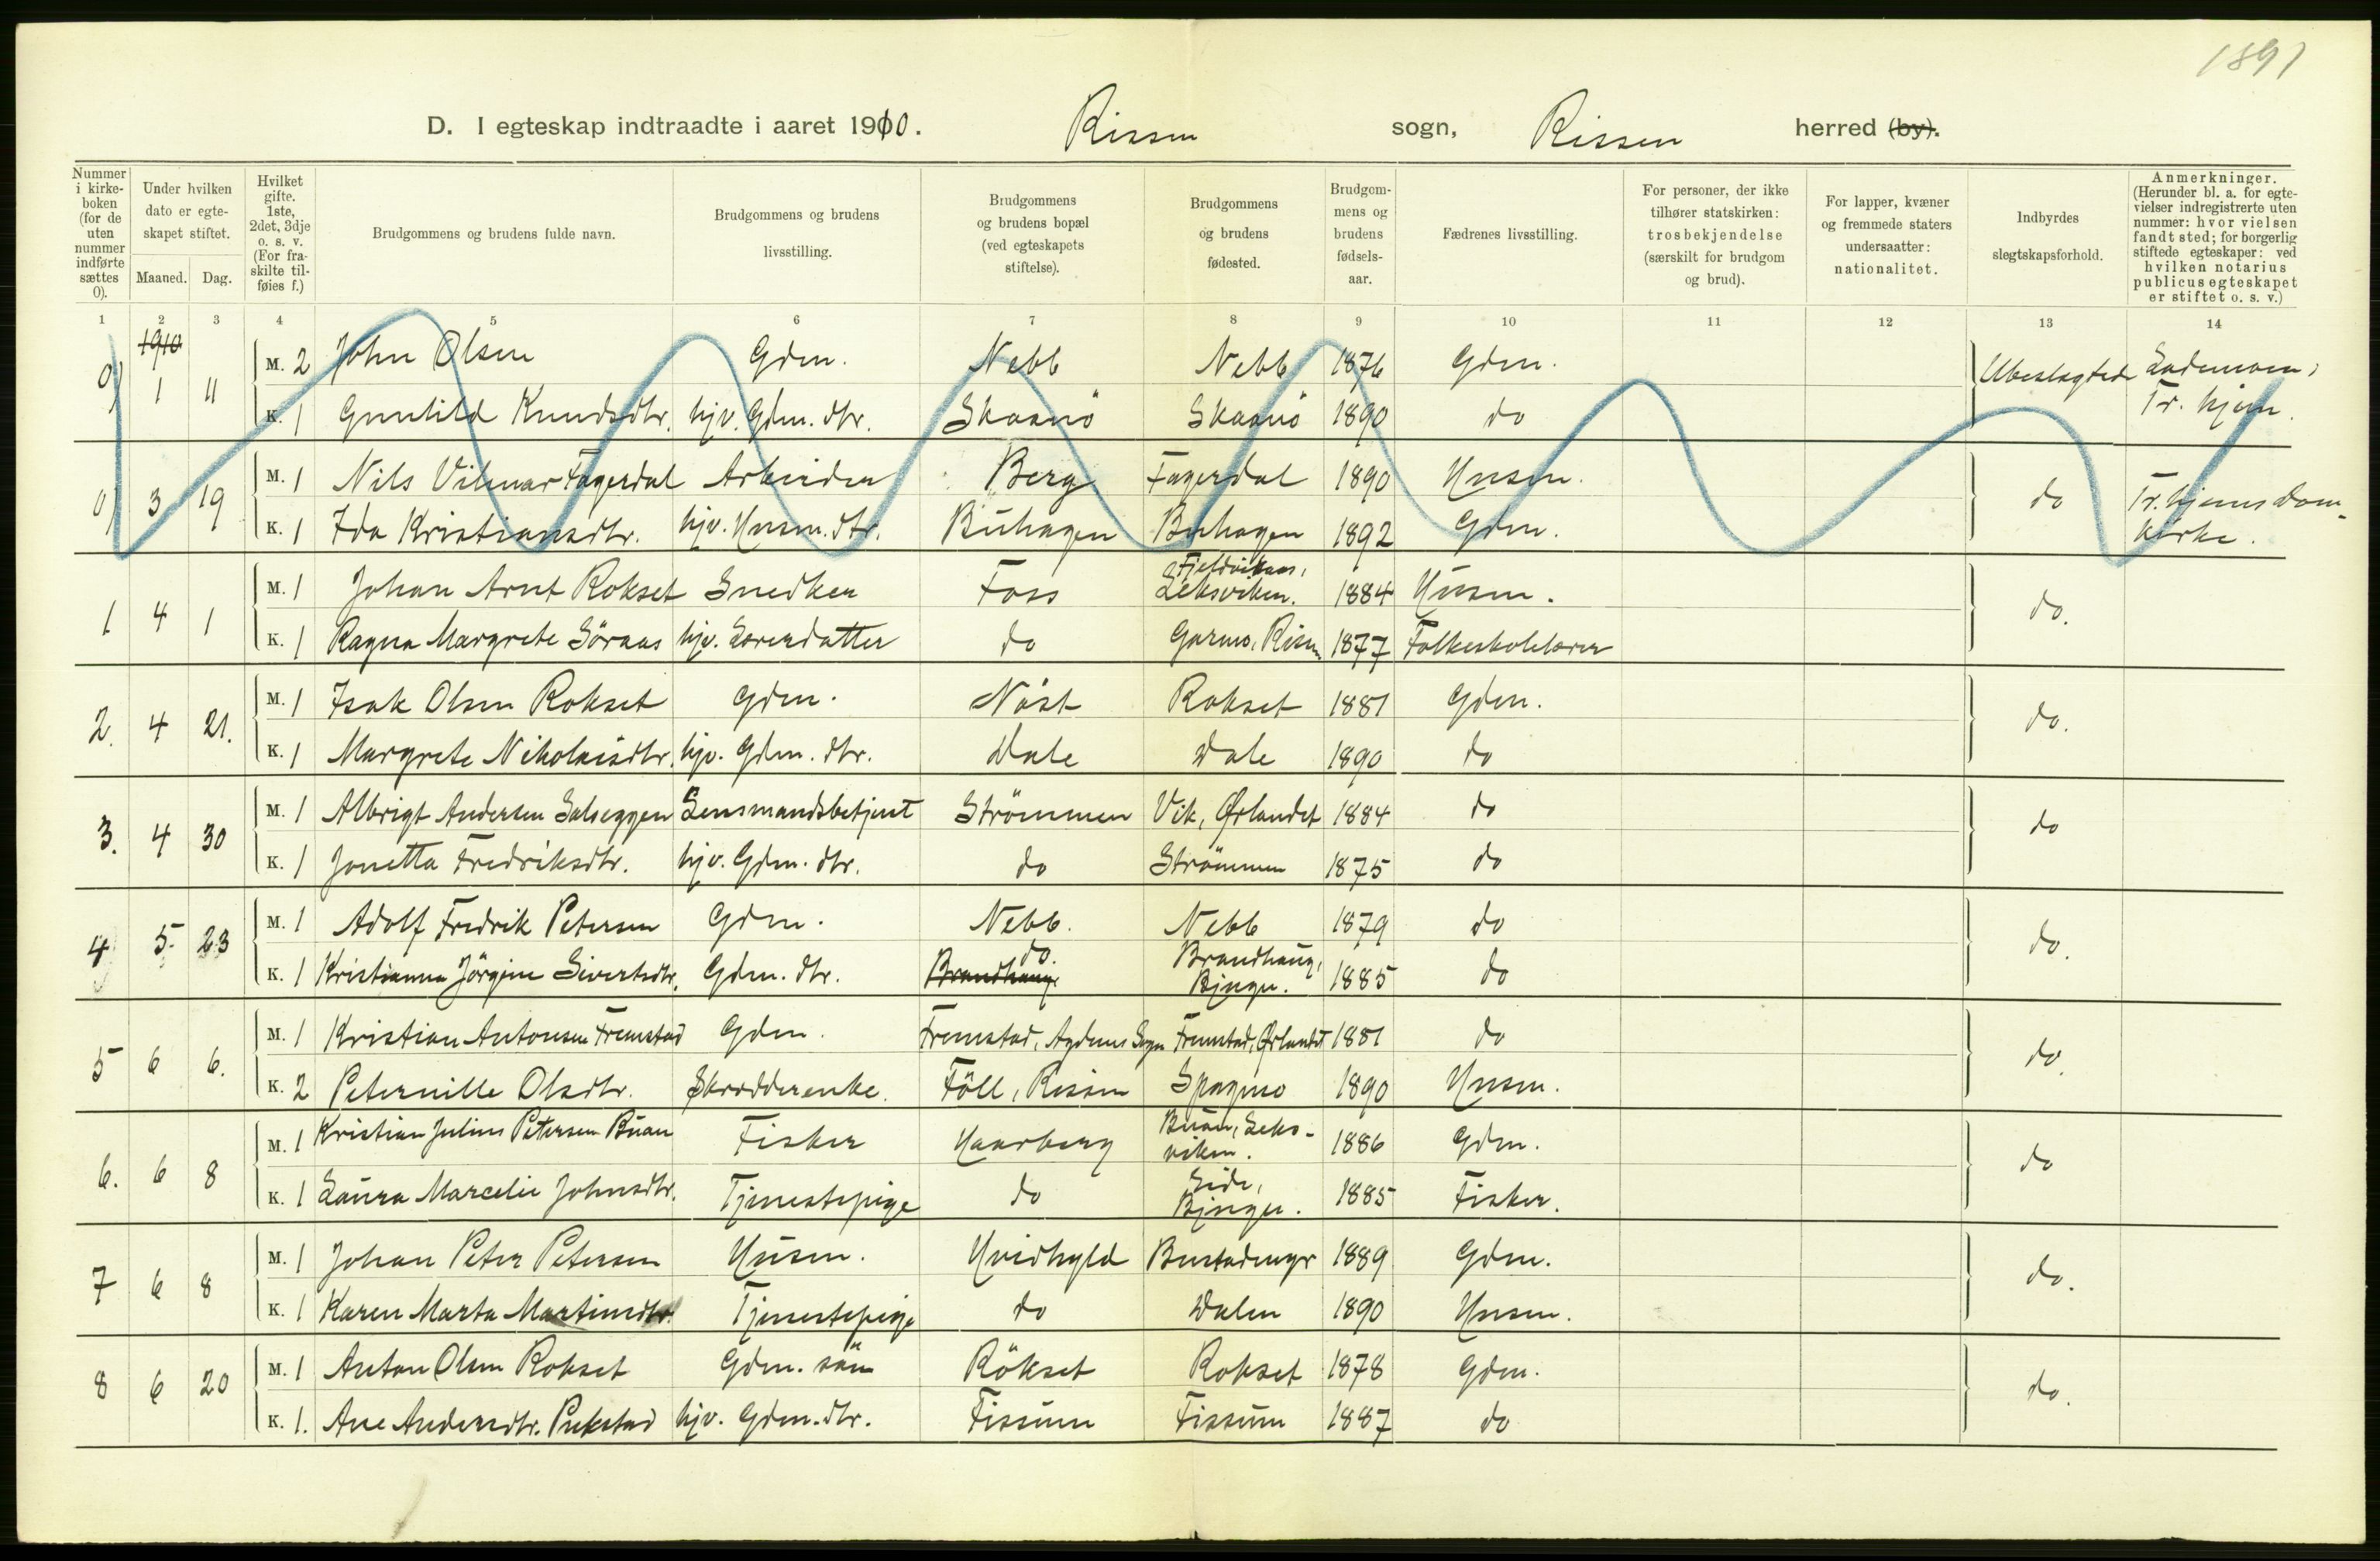 1891
D. I egteskap indtraadte i aaret 1910. Rissen sogn, Rissen herred (by).
Nummer i kirke-boken (for de uten nummer indførte sættes 0).
Under hvilken dato er egte-skapet stiftet.
Maaned. Dag.
Hvilket gifte. 1ste, 2det, 3dje o. s. v. (For fra-skilte til-føies f.)
Brudgommens og brudens fulde navn.
Brudgommens og brudens livsstilling.
Brudgommens og brudens bopæl (ved egteskapets stiftelse).
Brudgommens og brudens fødested.
Brudgom-mens og brudens fødsels-aar.
Fædrenes livsstilling.
For personer, der ikke tilhører statskirken: trosbekjendelse (særskilt for brudgom og brud).
For lapper, kvæner og fremmede staters undersaatter: nationalitet.
Indbyrdes slegtskapsforhold.
Anmerkninger. (Herunder bl. a. for egte-vielser indregistrerte uten nummer: hvor vielsen fandt sted; for borgerlig stiftede egteskaper: ved hvilken notarius publicus egteskapet er stiftet o. s. v.)
1 2 3 4 5 6 7 8 9 10 11 12 13 14
1910
0) 1 11 M. 2 John Olsen Gdm. Nebb Nebb 1876 Gdm. Ubeslagtede Lademoen,
K. 1 Gunhild Knudsdtr. hjv. Gdm. dtr. Skaanö Skaanö 1890 do Tr. hjem.
0) 3 19 M. 1 Nils Vilmar Fagerdal Arbeider Berg Fagerdal 1890 Husm. do Tr. hjems Dom-
K. 1 Ida Kristiansdtr. hjv. Husm. dtr. Buhagen Buhagen 1892 Gdm. kirke.
1 4 1 M. 1 Johan Arnt Rokset Snedker Foss Leksviken. 1884 Husm. do.
K. 1 Ragna Margrete Söraas hjv. Lærerdatter do Rissen 1877 Folkeskolelærer
2. 4 21. M. 1 Isak Olsen Rokset Gdm. Nöst Rokset 1881 Gdm. do.
K. 1 Margrete Nikolaisdtr. hjv. Gdm. dtr. Dale Dale 1890 do
3. 4 30 M. 1 Albrigt Andersen Salseggen Lensmandsbetjent Strömmen Vik, Ørlandet 1884 do do
K. 1 Jonetta Fredriksdtr. hjv. Gdm. dtr. do Strömmen 1875 do
4 5. 23 M. 1 Adolf Fredrik Petersen Gdm. Nebb. Nebb 1879 do do.
K. 1 Kristianna Jörgine Sivertsdtr. Gdm. dtr. Brandhaug do. Brandhaug, Bjugn. 1885 do
5 6 6. M. 1 Kristian Antonsen Fremstad Gdm. Fremstad, Agdenes Sogn Fremstad, Ørlandet 1881 do do.
K. 2 Peternille Olsdtr. Skrædderenke. Föll, Rissen 1890 Husm.
6. 6 8 M. 1 Kristian Julius Petersen Buan Fisker Haarberg Buan, Leks-viken. 1886 Gdm. do
K. 1 Laura Marcelie Johnsdtr. Tjenestepige do Eide, Bjugn. 1885 Fisker.
7 6 8 M. 1 Johan Peter Petersen Husm. Hvidhyld 1889 Gdm. do.
K. 1 Karen Marta Martinsdtr. Tjenestepige do Dalen 1890 Husm.
8 6 20 M. 1 Anton Olsen Rokset Gdm. sön Rökset Rokset 1878 Gdm. do.
K. 1. Ane Andersdtr. hjv. Gdm. dtr. Fissum Fissum 1887 do